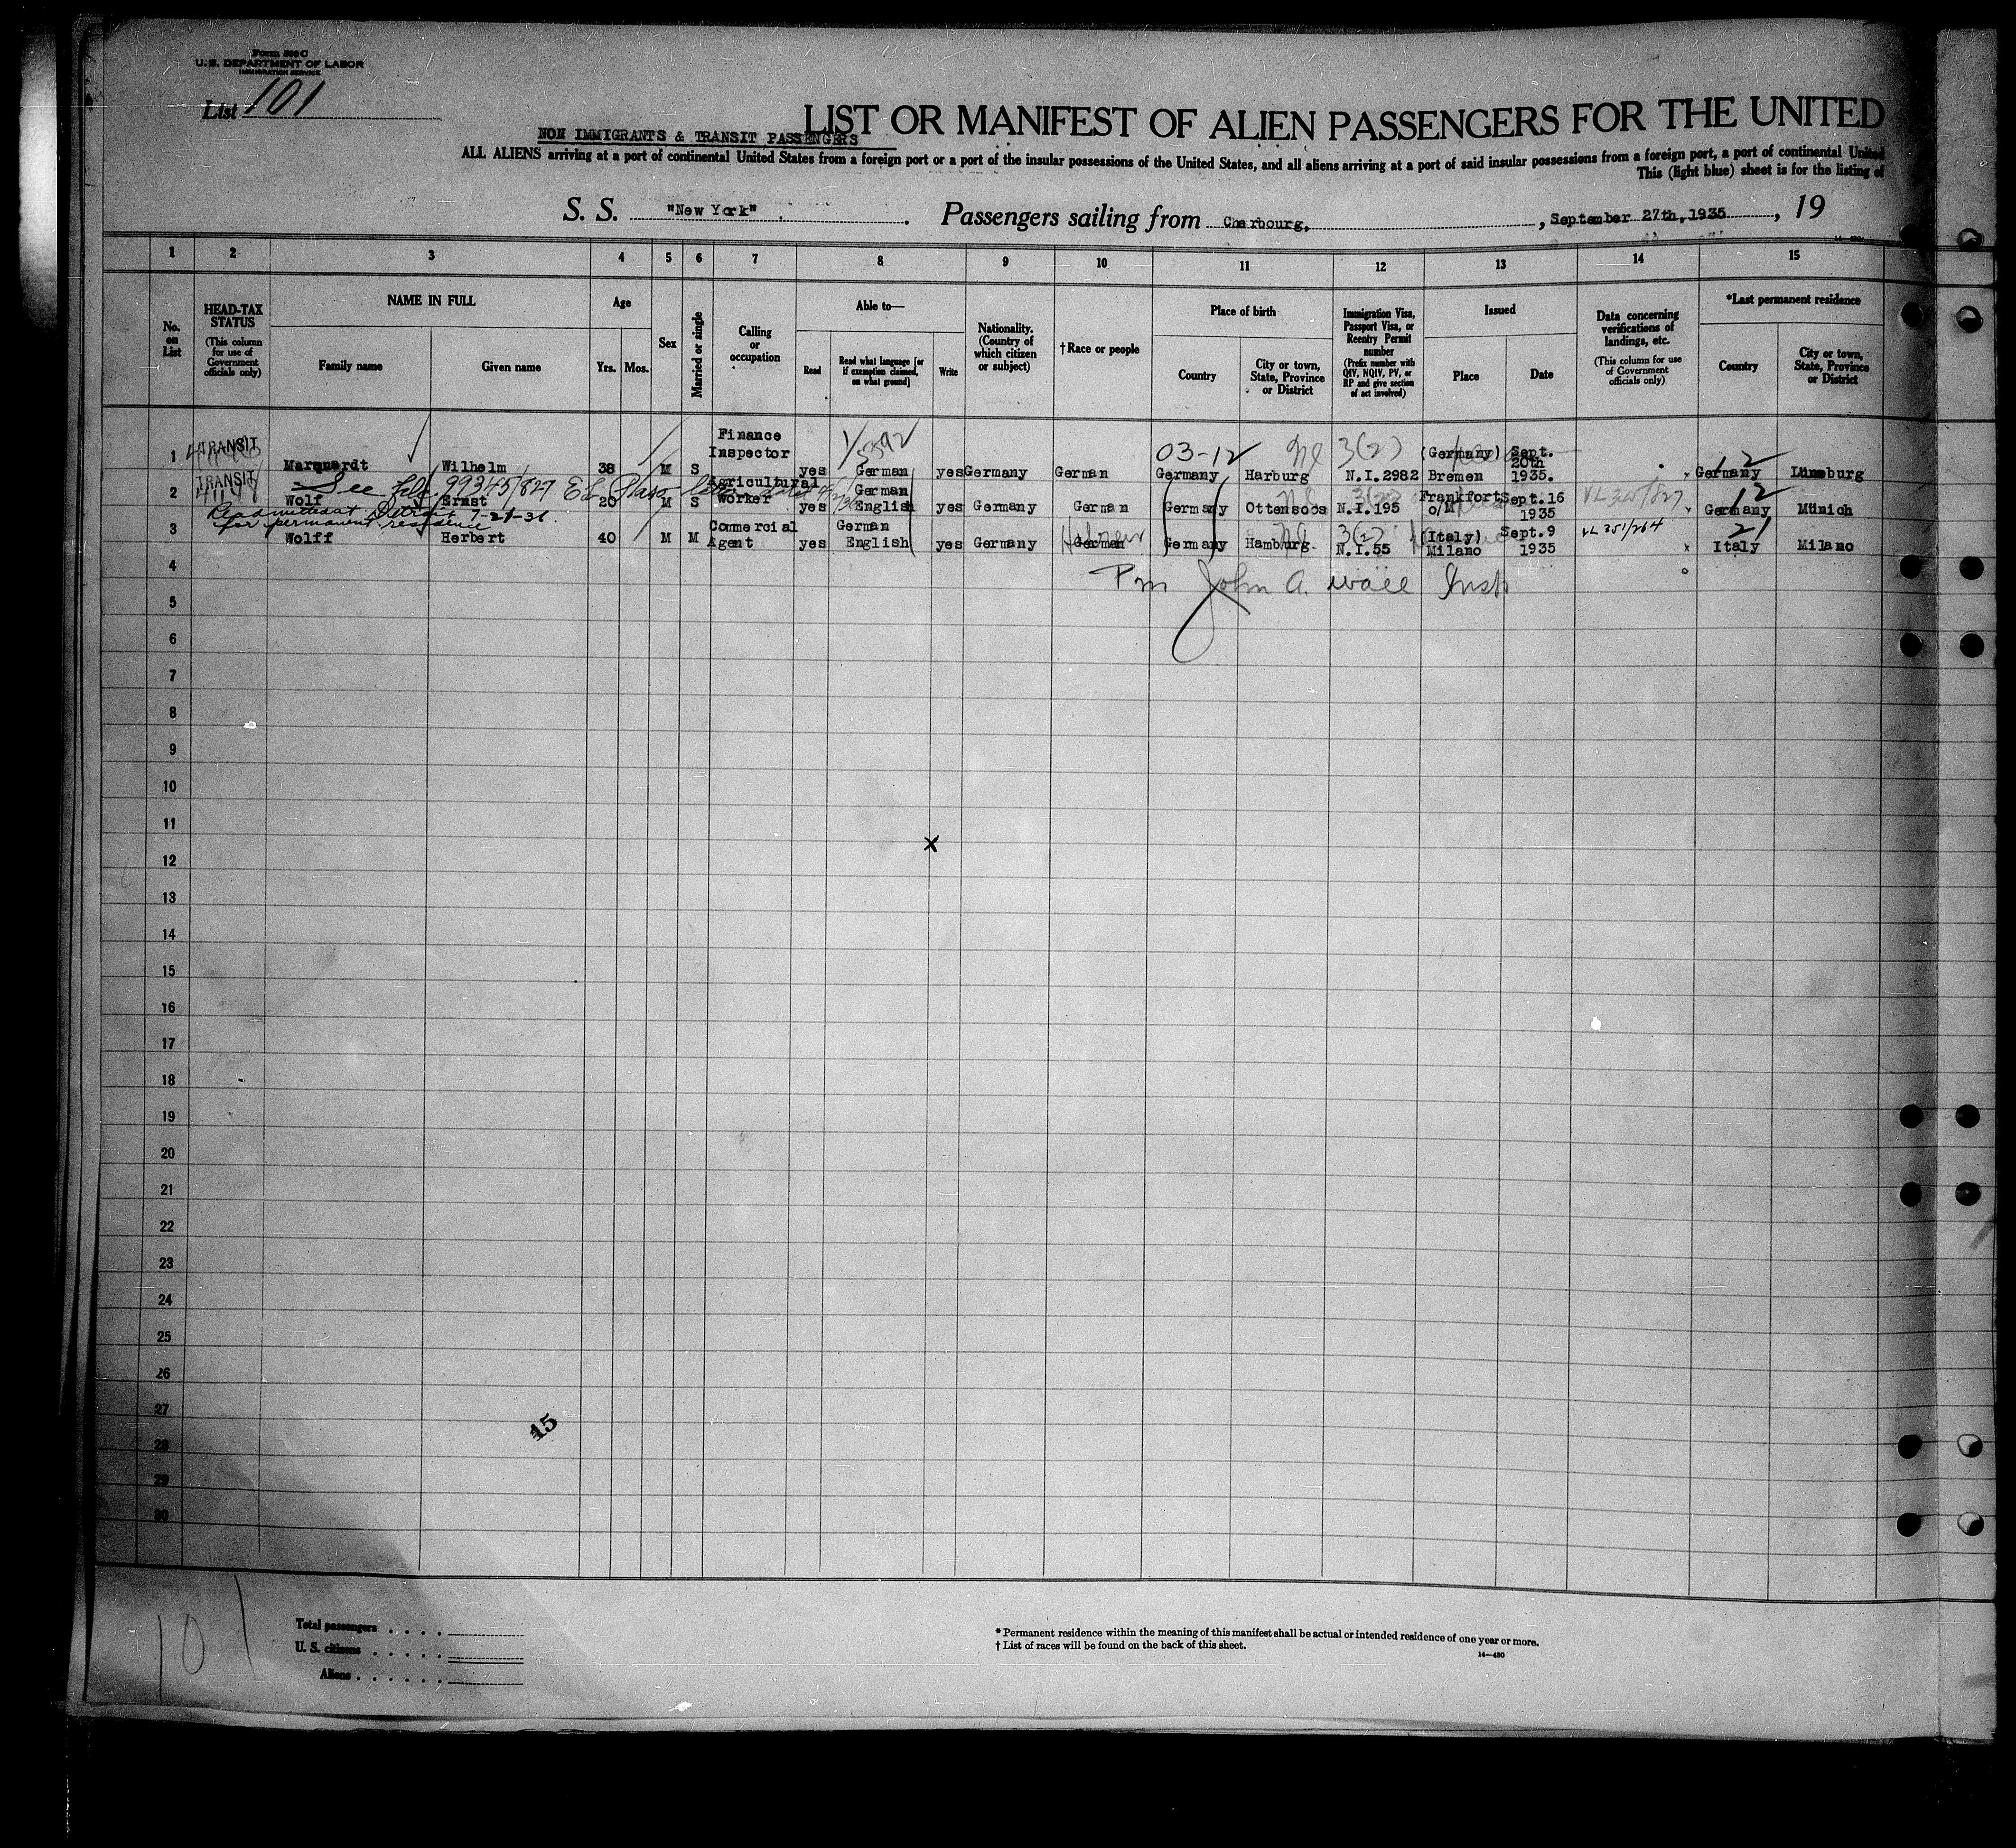 Form 500 C
U. S. DEPARTMENT OF LABOR
IMMIGRATION SERVICE
List 101
LIST OR MANIFEST OF ALIEN PASSENGERS FOR THE UNITED
NON IMMIGRANTS & TRANSIT PASSENGERS
ALL ALIENS arriving at a port of continental United States from a foreign port or a port of the insular possessions of the United States, and all aliens arriving at a port of said insular possessions from a foreign port, a port of continental United
This (light blue) sheet is for the listing of
S. S. "New York" . Passengers sailing from Cherbourg, , September 27th, 1935 , 19
1 2 3 4 5 6 7 8 9 10 11 12 13 14 15
No. on List
HEAD-TAX STATUS
(This column for use of Government officials only)
NAME IN FULL
Family name Given name
Age
Yrs. Mos.
Sex
Married or single
Calling or occupation
Able to—
Read
Read what language [or if exemption claimed, on what ground]
Write
Nationality. (Country of which citizen or subject)
†Race or people
Place of birth
Country
City or town, State, Province or District
Immigration Visa, Passport Visa, or Reentry Permit number
(Prefix number with QIV, NQIV, PV, or RP and give section of act involved)
Issued
Place Date
Data concerning verifications of landings, etc.
(This column for use of Government officials only)
*Last permanent residence
Country
City or town, State, Province or District
1 TRANSIT Marquardt Wilhelm 38 M S Finance Inspector yes German yes Germany German 03-12 Germany Harburg 3(2) N.I.2982 (Germany) Bremen Sept. 20th 1935. 12 Germany Lüneburg
See file 99345/827 El Paso
2 TRANSIT Wolf Ernst 20 M S Agricultural Worker yes German English yes Germany German Germany Ottensoos 3(2) N.I.195 Frankfort o/M Sept.16 1935 VL 325/827 12 Germany Münich
Readmitted at Detroit 7-21-36
for permanent residence
3 Wolff Herbert 40 M M Commercial Agent yes German English yes Germany Hebrew German Germany Hamburg 3(2) N.I.55 (Italy) Milano Sept.9 1935 VL 351/264 21 Italy Milano
4
Pm John A. Wall Insp
5
6
7
8
9
10
11
x
12
13
14
15
16
17
18
19
20
21
22
23
24
25
26
27
15
28
29
30
101
Total passengers . . . .
U. S. citizens . . . . .
Aliens . . . . . .
* Permanent residence within the meaning of this manifest shall be actual or intended residence of one year or more.
† List of races will be found on the back of this sheet.
14—430